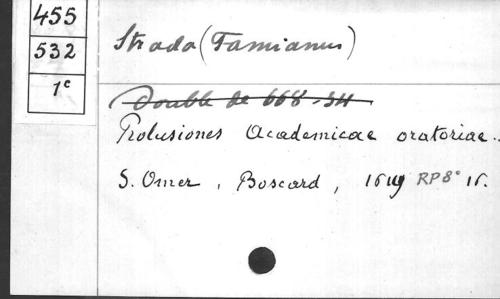 455
532
1e
Strada (Famianus)
Double de 668-34
Prolusiones Academicae oratoriae..
S. Omer, Boscard, 1619 RP8° 16.